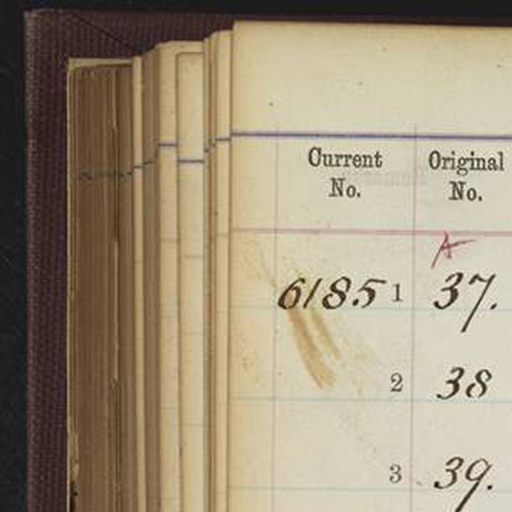 Current No. Original No.
A
6185 1 37.
2 38
3 39.